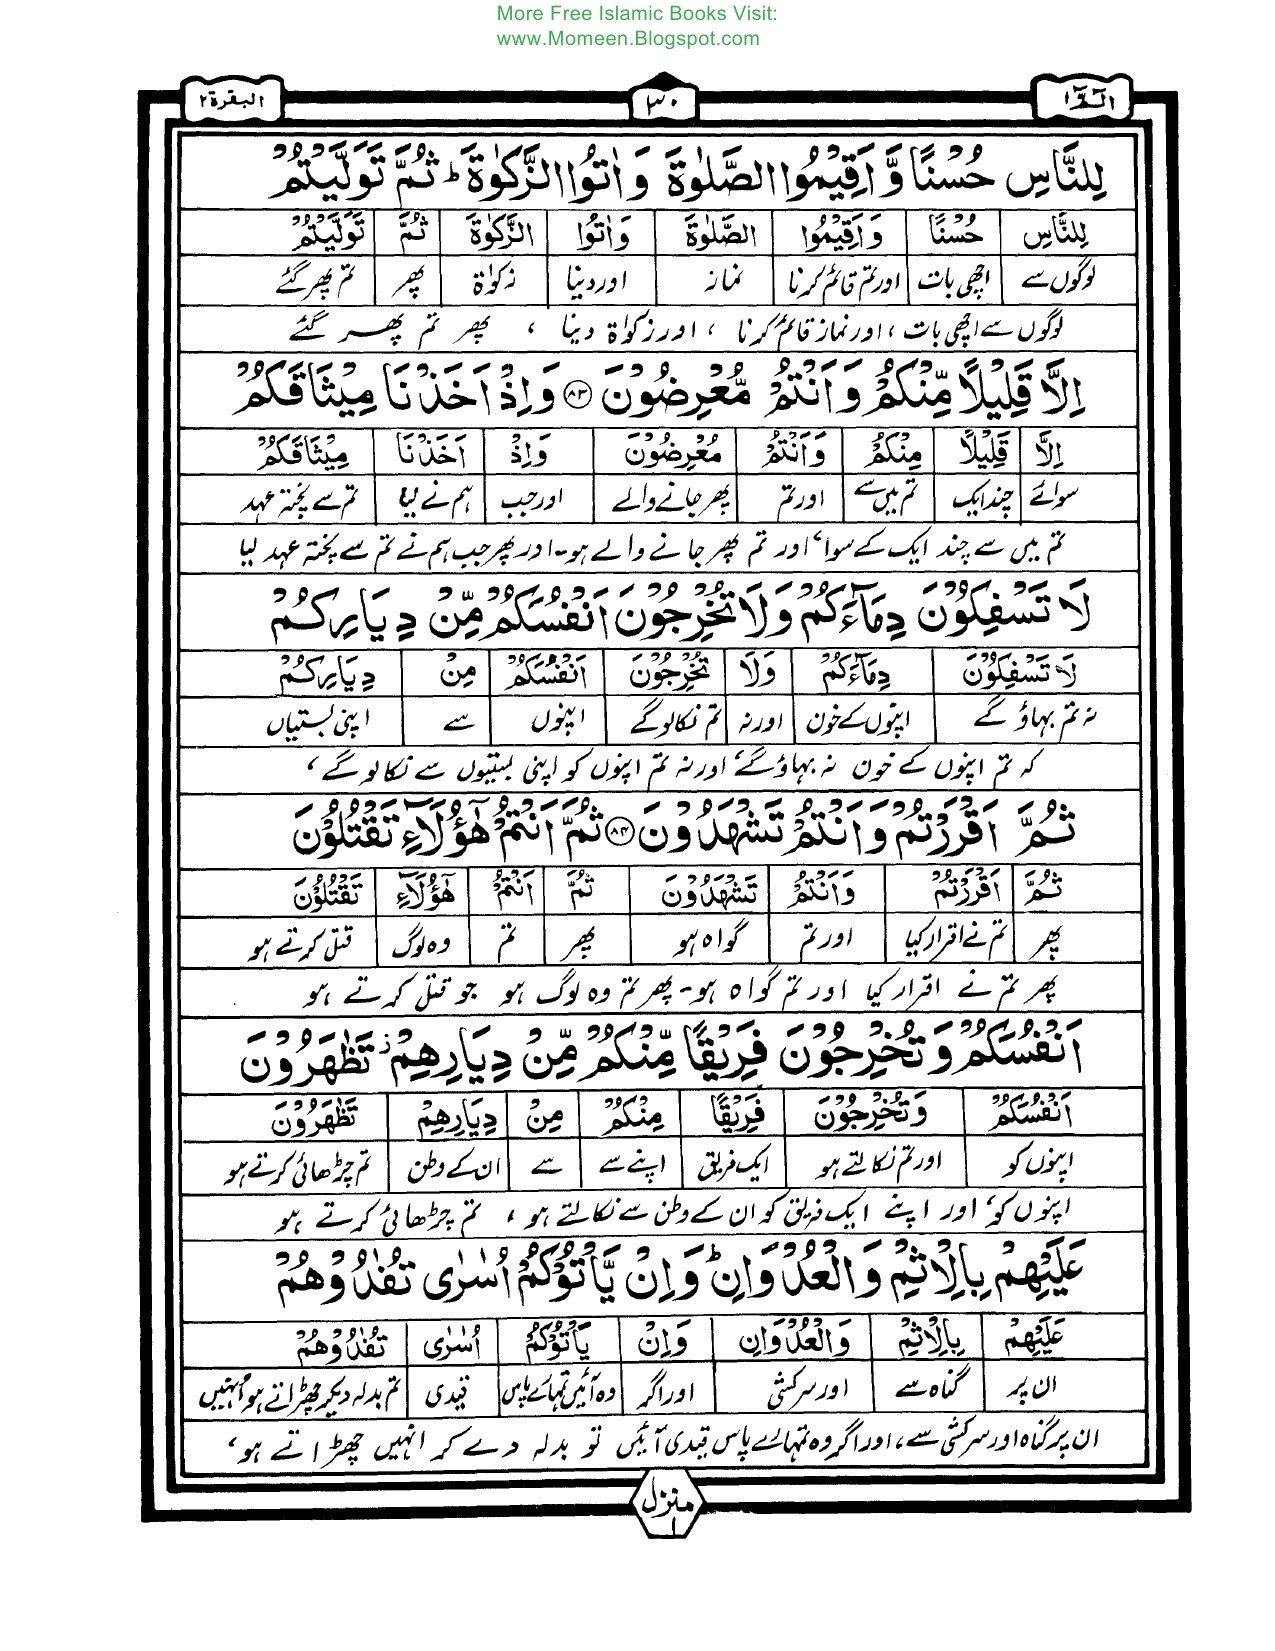 More Free Islamic Books Visit:
www.Momeen.Blogspot.com
الٓمّٓ ۱ ۳۰ البقرۃ ۲
لِلنَّاسِ حُسْنًا وَّ اَقِيْمُوا الصَّلٰوةَ وَ اٰتُوا الزَّكٰوةَ ؕ ثُمَّ تَوَلَّيْتُمْ
لِلنَّاسِ حُسْنًا وَ اَقِيْمُوا الصَّلٰوةَ وَ اٰتُوا الزَّكٰوةَ ثُمَّ تَوَلَّيْتُمْ
لوگوں سے اچھی بات اور تم قائم کرنا نماز اور دینا زکوٰۃ پھر تم پھر گئے
لوگوں سے اچھی بات ، اور نماز قائم کرنا ، اور زکوٰۃ دینا ، پھر تم پھر گئے
اِلَّا قَلِيْلًا مِّنْكُمْ وَ اَنْتُمْ مُّعْرِضُوْنَ ۸۳ وَ اِذْ اَخَذْنَا مِيْثَاقَكُمْ
اِلَّا قَلِيْلًا مِنْكُمْ وَ اَنْتُمْ مُعْرِضُوْنَ وَ اِذْ اَخَذْنَا مِيْثَاقَكُمْ
سوائے چند ایک تم میں سے اور تم پھر جانے والے اور جب ہم نے لیا تم سے پختہ عہد
تم میں سے چند ایک کے سوا، اور تم پھر جانے والے ہو۔ اور پھر جب ہم نے تم سے پختہ عہد لیا
لَا تَسْفِكُوْنَ دِمَآءَكُمْ وَلَا تُخْرِجُوْنَ اَنْفُسَكُمْ مِّنْ دِيَارِكُمْ
لَا تَسْفِكُوْنَ دِمَآءَكُمْ وَلَا تُخْرِجُوْنَ اَنْفُسَكُمْ مِنْ دِيَارِكُمْ
نہ تم بہاؤ گے اپنوں کے خون اور نہ تم نکالو گے اپنوں سے اپنی بستیاں
کہ تم اپنوں کے خون نہ بہاؤ گے، اور نہ تم اپنوں کو اپنی بستیوں سے نکالو گے ،
ثُمَّ اَقْرَرْتُمْ وَ اَنْتُمْ تَشْهَدُوْنَ ۸۴ ثُمَّ اَنْتُمْ هٰٓؤُلَآءِ تَقْتُلُوْنَ
ثُمَّ اَقْرَرْتُمْ وَ اَنْتُمْ تَشْهَدُوْنَ ثُمَّ اَنْتُمْ هٰٓؤُلَآءِ تَقْتُلُوْنَ
پھر تم نے اقرار کیا اور تم گواہ ہو پھر تم وہ لوگ قتل کرتے ہو
پھر تم نے اقرار کیا اور تم گواہ ہو۔ پھر تم وہ لوگ ہو جو قتل کرتے ہو
اَنْفُسَكُمْ وَ تُخْرِجُوْنَ فَرِيْقًا مِّنْكُمْ مِّنْ دِيَارِهِمْ ز تَظٰهَرُوْنَ
اَنْفُسَكُمْ وَ تُخْرِجُوْنَ فَرِيْقًا مِنْكُمْ مِنْ دِيَارِهِمْ تَظٰهَرُوْنَ
اپنوں کو اور تم نکالتے ہو ایک فریق اپنے سے سے ان کے وطن تم چڑھائی کرتے ہو
اپنوں کو، اور اپنے ایک فریق کو ان کے وطن سے نکالتے ہو ، تم چڑھائی کرتے ہو
عَلَيْهِمْ بِالْاِثْمِ وَ الْعُدْوَانِ ؕ وَ اِنْ يَّاْتُوْكُمْ اُسٰرٰى تُفٰدُوْهُمْ
عَلَيْهِمْ بِالْاِثْمِ وَ الْعُدْوَانِ وَ اِنْ يَاْتُوْكُمْ اُسٰرٰى تُفٰدُوْهُمْ
ان پر گناہ سے اور سرکشی اور اگر وہ آئیں تمہارے پاس قیدی تم بدلہ دیکر چھڑاتے ہو انہیں
ان پر گناہ اور سرکشی سے ، اور اگر وہ تمہارے پاس قیدی آئیں تو بدلہ دے کر انہیں چھڑاتے ہو ،
منزل ۱